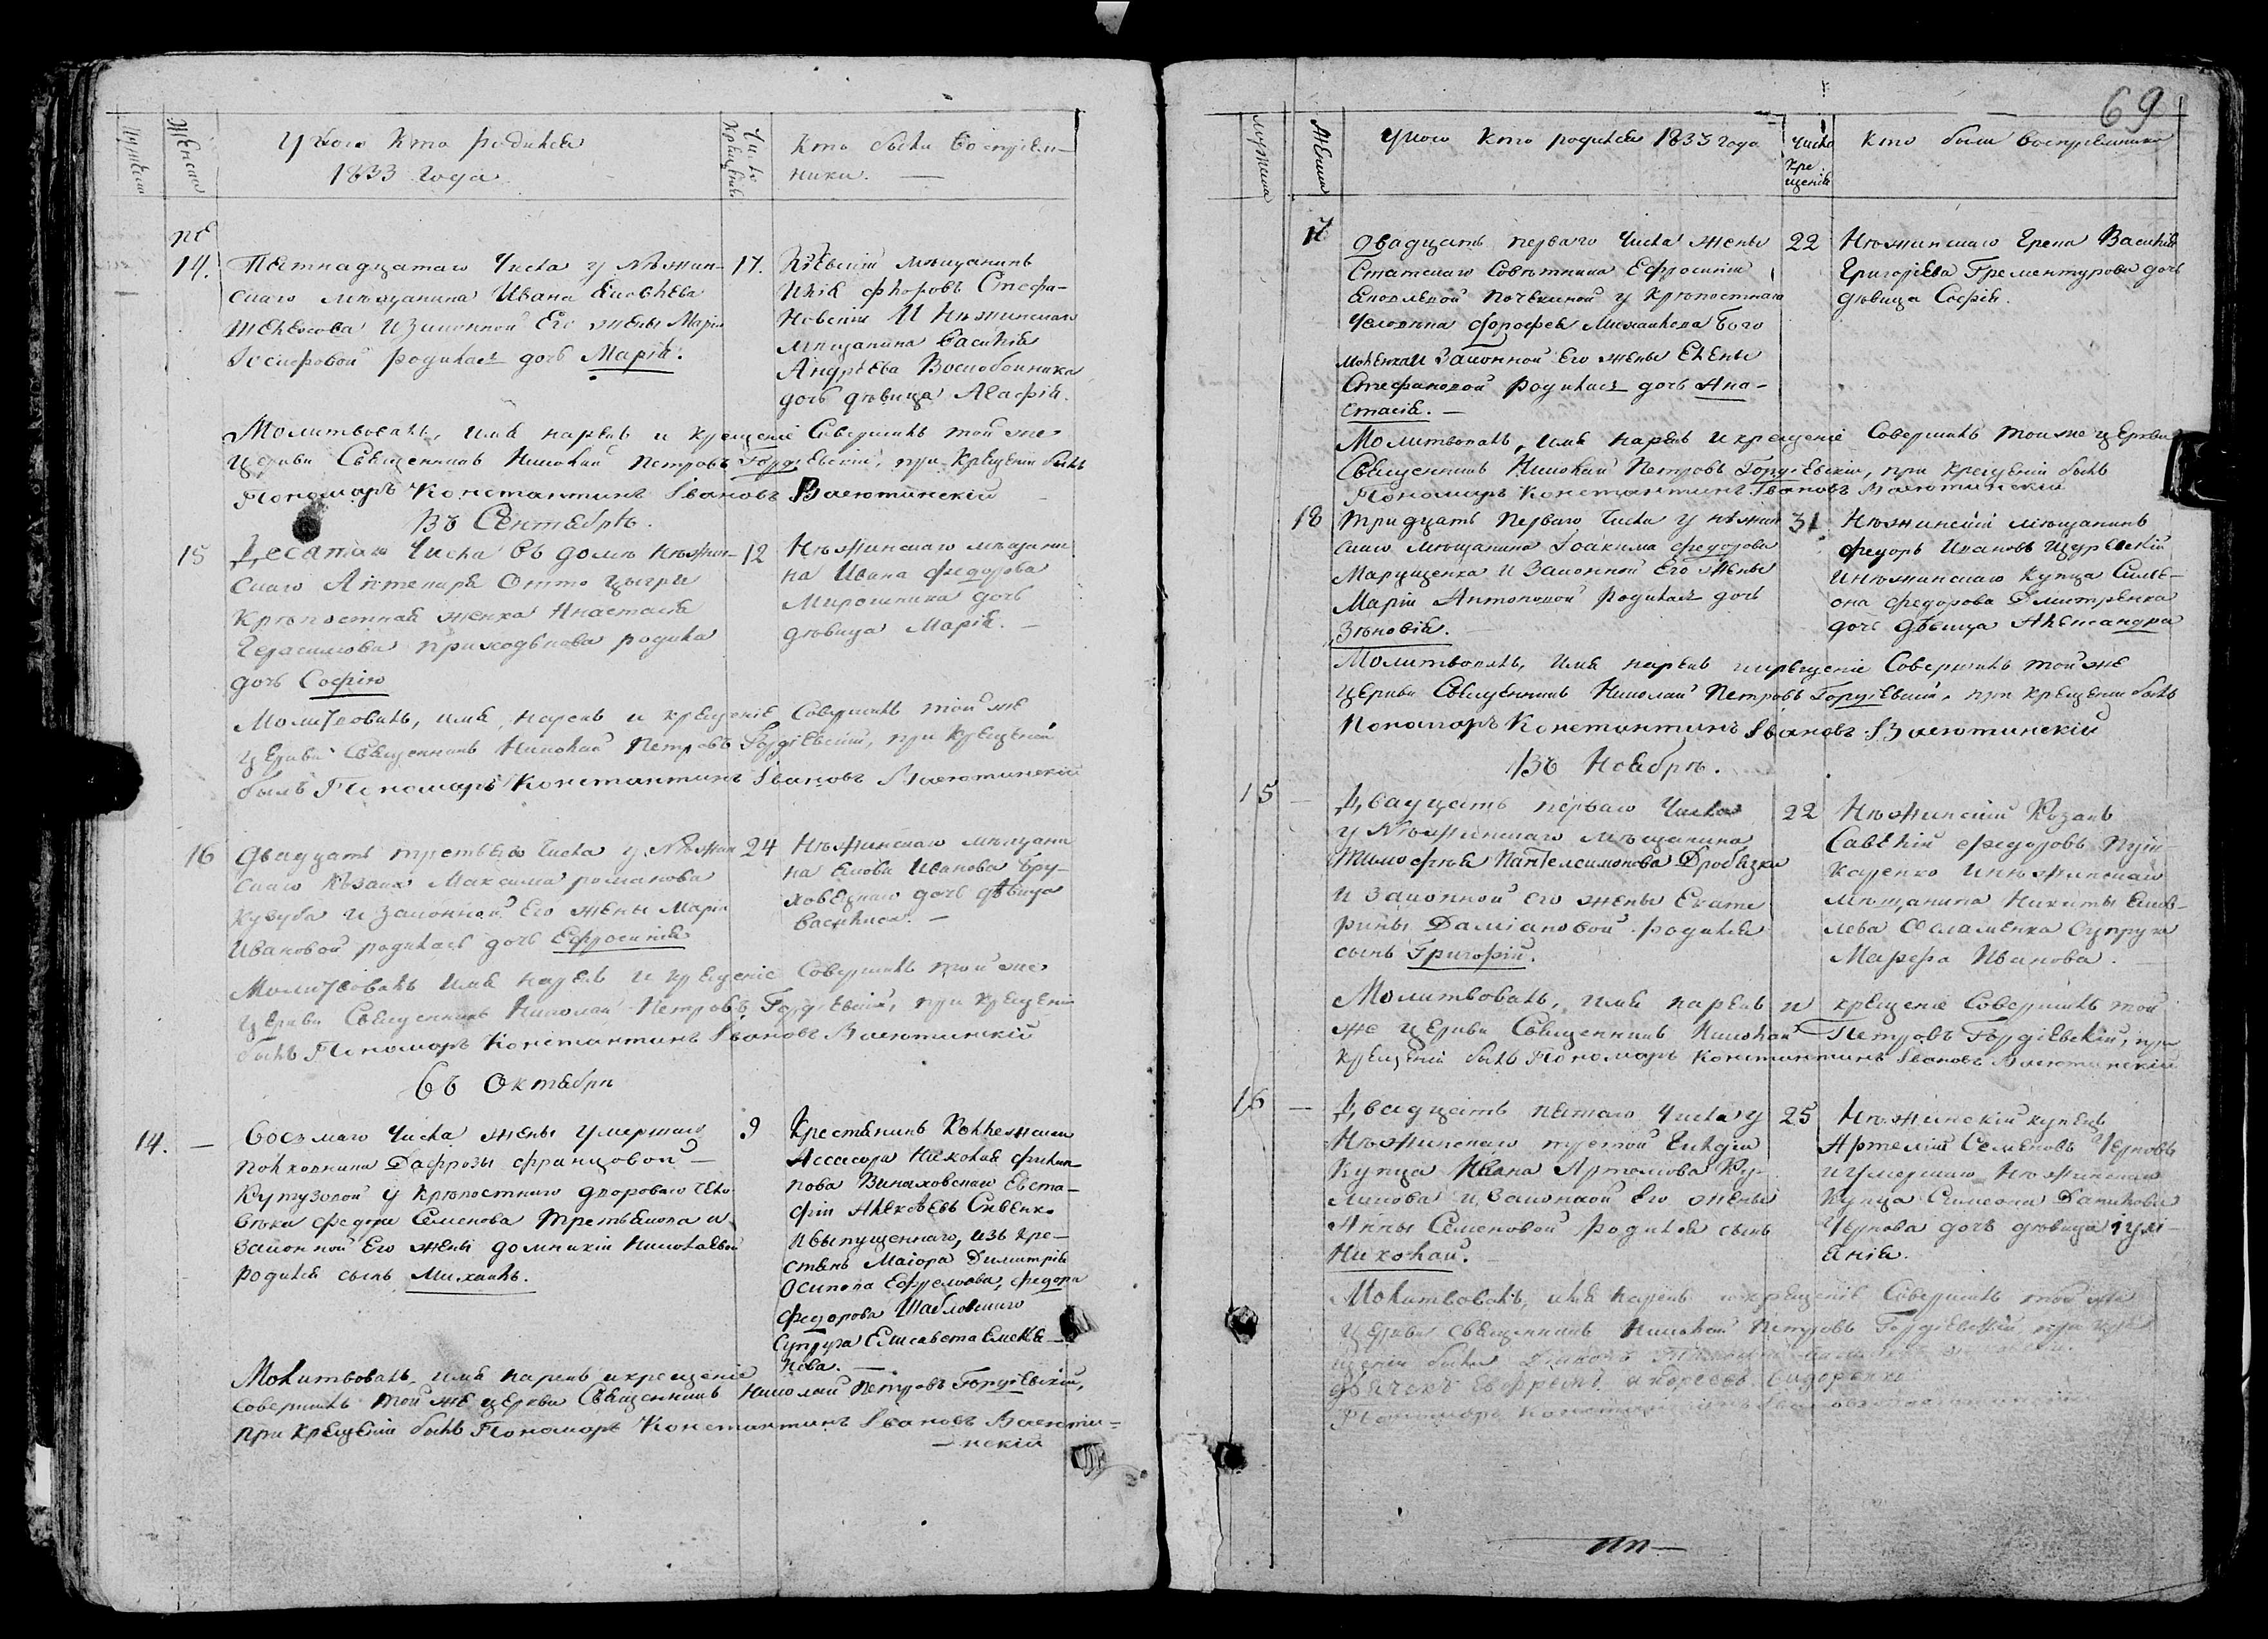 Мужеска
Женска
У кого кто родился
1833 года
Число крещенія
Кто были воспріем-
ники. —
14.
Пятнадцатаго числа у Нѣжин-
скаго мѣщанина Ивана Яковлева
и законной его жены Маріи
Іосифовой родилась дочь Марія.
17.
Кіевскій мѣщанинъ
Илія Флоровъ Стефа-
новскій И Нѣжинскаго
мѣщанина Василія
Андрѣева Воскобойника
дочь дѣвица Агафія.
Молитвовалъ, имя нарекъ и крещеніе совершилъ той же
церкви Священникъ Николай Петровъ Гордіевскій, при крещеніи былъ
Пономарь Константинъ Івановъ Васютинскій
Въ Сентябрѣ.
15
Десятаго числа въ домѣ Нѣжин-
скаго Аптекаря Отто Цыгры
крѣпостная женка Анастасія
Герасимова Приходькова родила
дочь Софію
12
Нѣжинскаго мѣщани
на Ивана Федорова
Мирошника дочь
дѣвица Марія. —
Молитвовалъ, имя нарекъ и крещеніе совершилъ той же
церкви Священникъ Николай Петровъ Гордіевскій, при крещеніи
былъ Пономарь Константинъ Івановъ Васютинскій
16
Двадцать третьяго числа у Нѣжин
скаго Козака Максима Романова
Кузуба и законной его жены Маріи
Ивановой родилась дочь Ефросинія
24
Нѣжинскаго мѣщани
на Якова Иванова Бру-
ховецкаго дочь дѣвица
Василиса. —
Молитвовалъ имя нарекъ и крещеніе совершилъ той же
церкви Священникъ Николай Петровъ Гордіевскій, при крещеніи
былъ Пономарь Константинъ Івановъ Васютинскій
Въ Октябрѣ
14. —
Восьмаго числа жены умершаго
полковника Дафрозы Францовой —
Кутузовой у крѣпостнаго двороваго чело
вѣка Федора Семенова Третьякова и
законной его жены Домникіи Николаевой
родился сынъ Михаилъ.
9
Крестьянинъ Коллежскаго
Ассесора Николая Филип-
пова Винаховскаго Евста-
фій Алексѣевъ Сивенко
и выпущеннаго, изъ кре-
стьянъ Маіора Димитрія
Осипова Ефремова, Федора
Федорова Шабловскаго
супруга Елисавета
Молитвовалъ, имя нарекъ и крещеніе
совершилъ той же церкви Священникъ Николай Петровъ Гордіевскій,
при крещеніи былъ Пономарь Константинъ Івановъ Васюти-
—нскій
69
Мужеска
Женска
У кого кто родился 1833 года
Число
кре
щенія
Кто были воспріемники
17
Двадцать перваго числа жены
Статскаго Совѣтника Ефросиніи
Яковлевой Почекиной у крѣпостнаго
человѣка Дорофея Михайлова Бого
и законной его жены Елены
Стефановой родилась дочь Ана-
стасія. —
22
Нѣжинскаго Грека Василія
Григоріева дочь
дѣвица Софія.
Молитвовалъ, имя нарекъ и крещеніе совершилъ той же церкви
Священникъ Николай Петровъ Гордіевскій, при крещеніи былъ
Пономарь Константинъ Івановъ Васютинскій
18
Тридцать перваго числа у Нѣжин
скаго мѣщанина Іоакима Федорова
Марущенка и законной его жены
Маріи Антоновой родилась дочь
Зѣновія.
31
Нѣжинскій мѣщанинъ
Федоръ Ивановъ Щуревскій
и Нѣжинскаго купца Симе-
она Федорова Дмитренка
дочь дѣвица Александра
Молитвовалъ, имя нарекъ и крещеніе совершилъ той же
церкви Священникъ Николай Петровъ Гордіевскій, при крещеніи былъ
Пономарь Константинъ Івановъ Васютинскій
Въ Ноябрѣ.
15 —
Двадцать перваго числа
у Нѣжинскаго мѣщанина
Тимофѣя Пантелеимонова Дробязки
и законной его жены Екате
рины Даміановой родился
сынъ Григорій.
22
Нѣжинскій Козакъ
Савелій Федоровъ Пуш
каренко и Нѣжинскаго
мѣщанина Никиты Яков-
лева супруга
Марфа Иванова.
Молитвовалъ, имя нарекъ и крещеніе совершилъ той
же церкви Священникъ Николай Петровъ Гордіевскій, при
крещеніи былъ Пономарь Константинъ Івановъ Васютинскій
16 —
Двадцать пятаго числа у
Нѣжинскаго третой Гильдіи
купца Ивана Артемова Ку-
ликова и законной его жены
Анны Семеновой родился сынъ
Николай.
25
Нѣжинскій купецъ
Артемій Семеновъ Черновъ
и умершаго Нѣжинскаго
купца Симеона Данилова
Чернова дочь дѣвица Іулі-
янія.
Молитвовалъ, имя нарекъ и крещеніе совершилъ той же
церкви Священникъ Николай Петровъ Гордіевскій, при кре
щеніи были Діаконъ
Дьячекъ Сидоренко
Пономарь Константинъ Івановъ Васютинскій